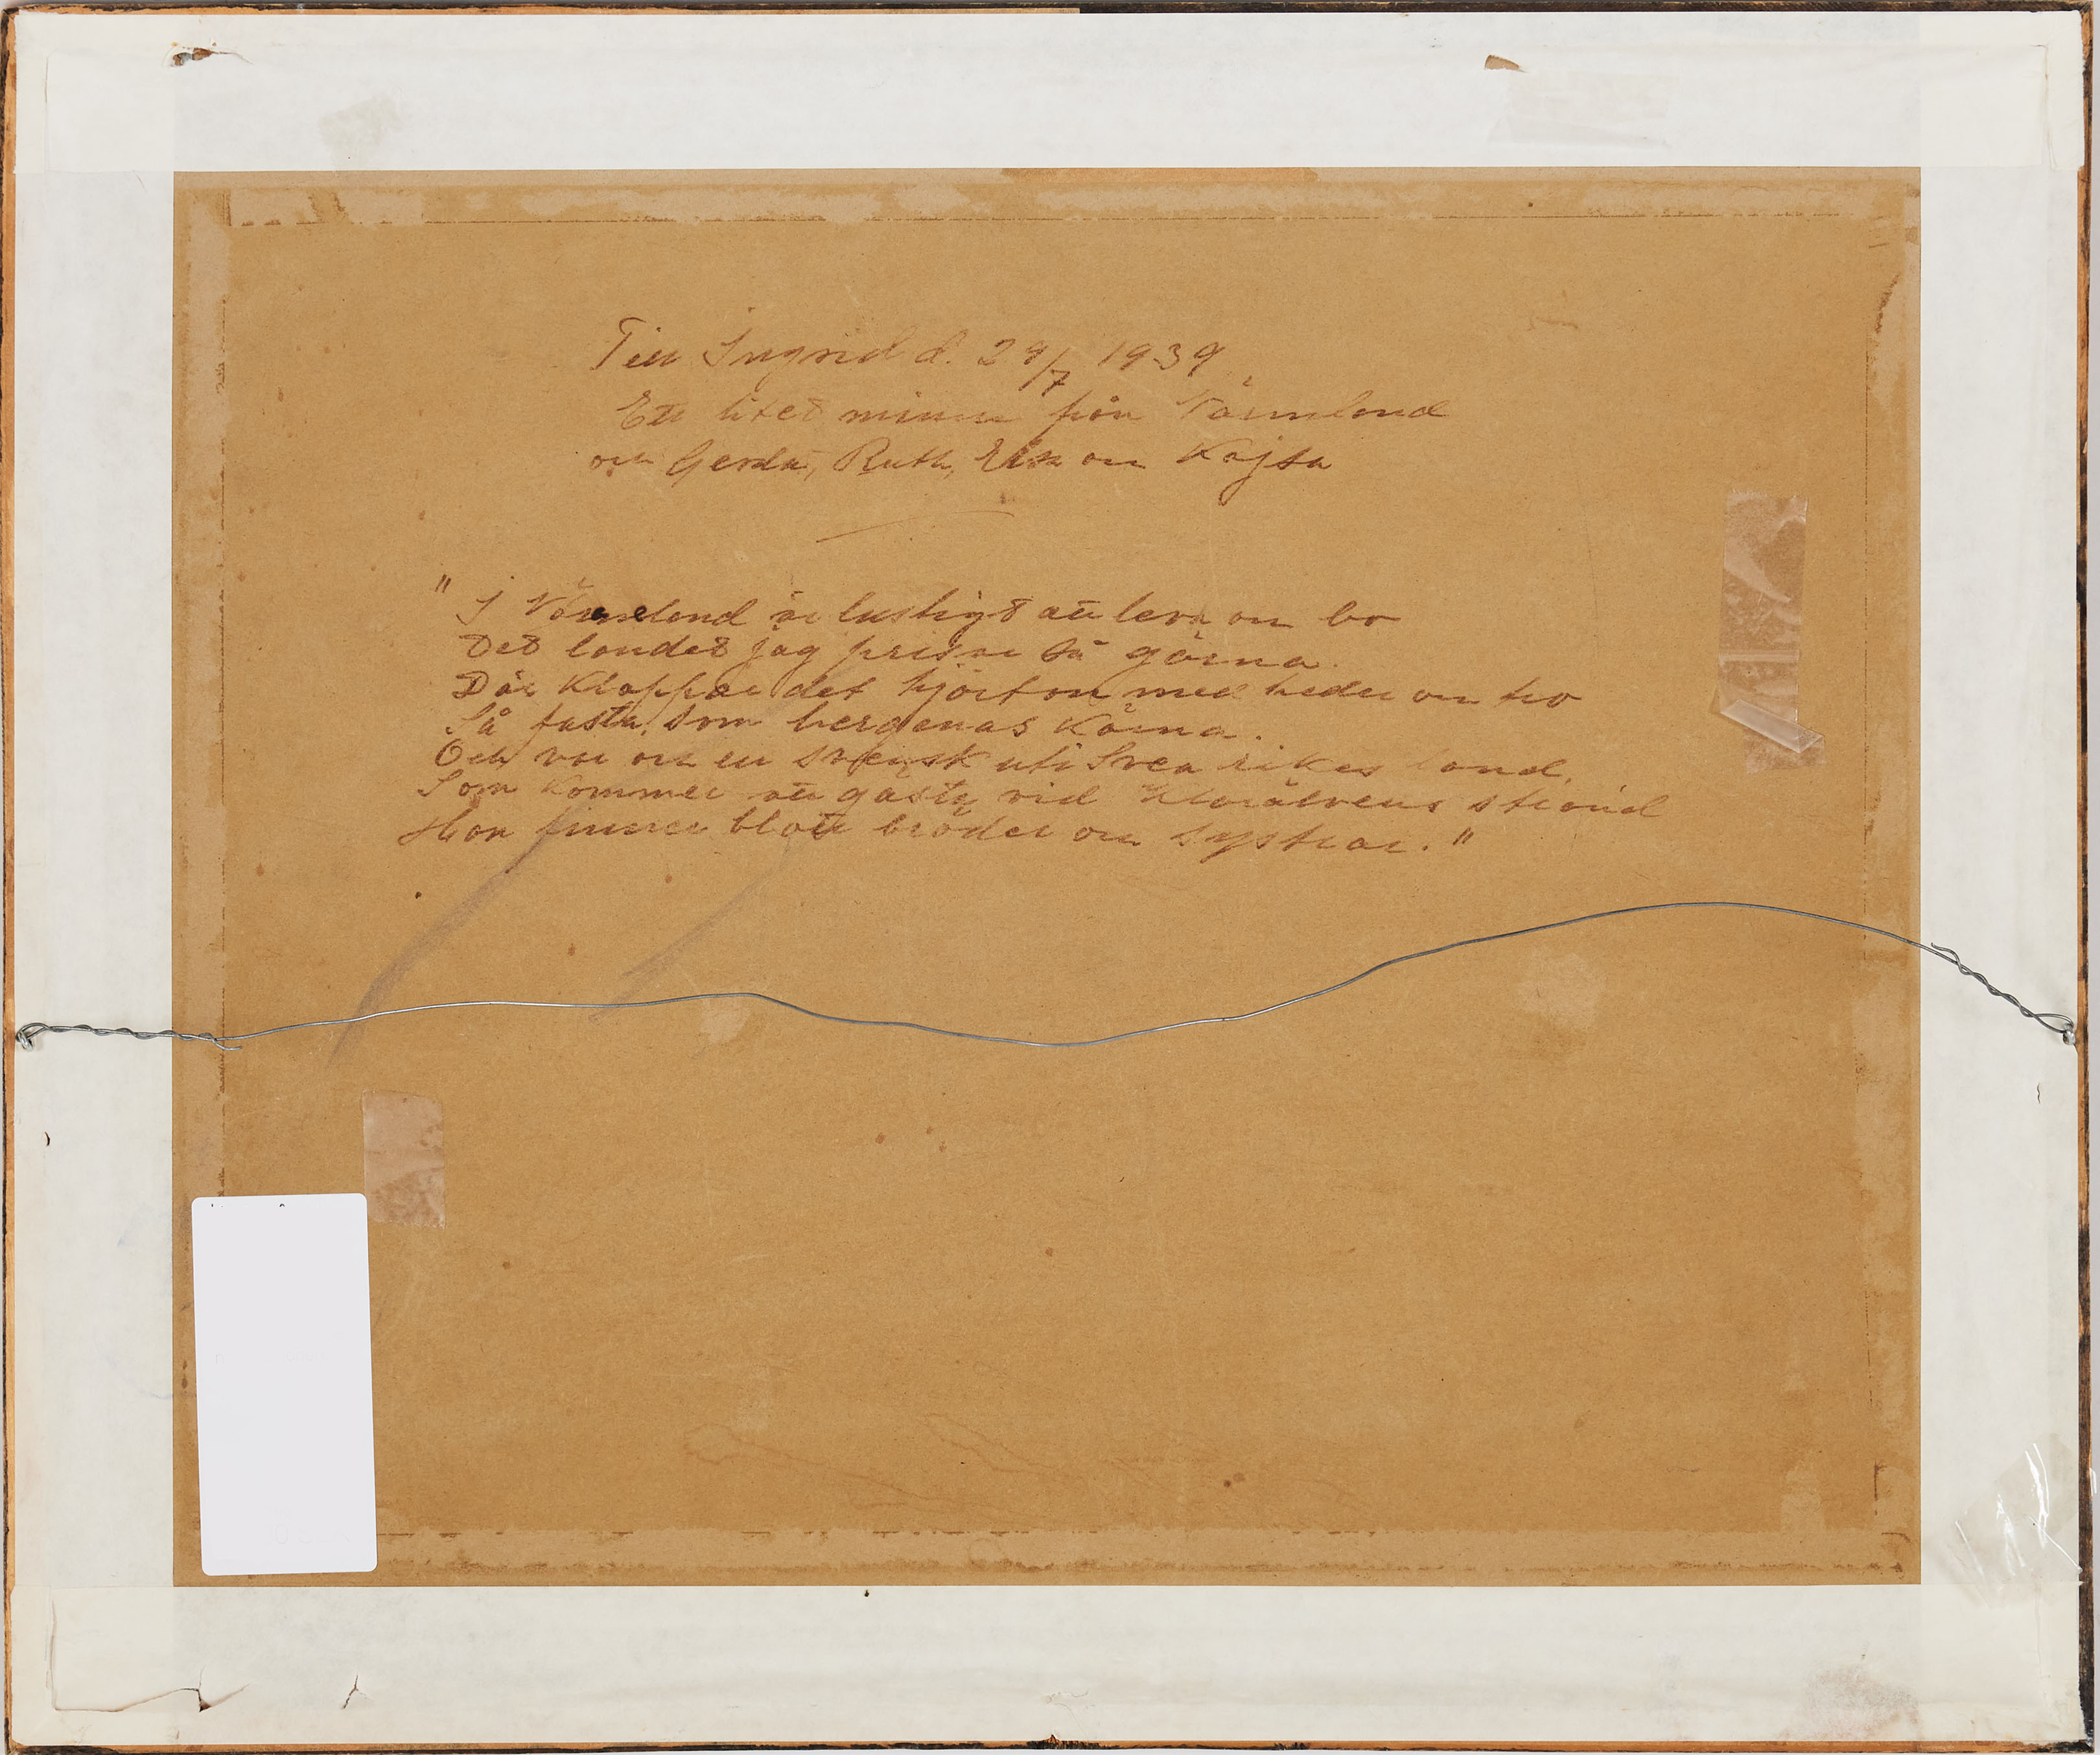 Till Ingrid d. 29/7 1939
Ett litet minne från Värmland
och Gerda, Ruth, och Kajsa
"I Värmeland är lustigt att leva och bo
Det landet jag prisar så gärna.
Där klappar det hjärtan med heder och tro
Så fasta, som bergenas kärna.
Och var och en svensk uti Svea rikes land,
Som kommer att gästa vid Klarälvens strand
Han finner blott bröder och systrar."